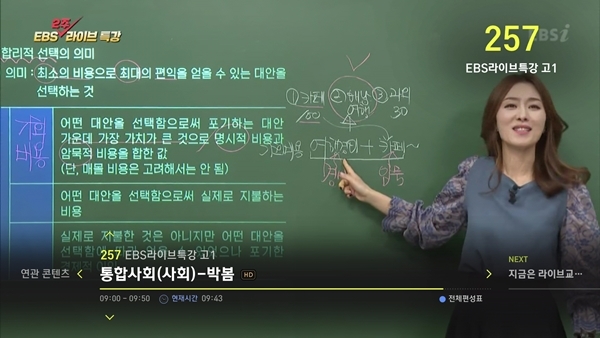 2주
EBS 라이브 특강
EBSi
257
EBS라이브특강 고1
합리적 선택의 의미
의미 : 최소의 비용으로 최대의 편익을 얻을 수 있는 대안을
선택하는 것
① 카페 ② 해남 ③ 과외
100 여행 30
어떤 대안을 선택함으로써 포기하는 대안
가운데 가장 가치가 큰 것으로 명시적 비용과
암묵적 비용을 합한 값
(단, 매몰 비용은 고려해서는 안 됨)
어떤 대안을 선택함으로써 실제로 지불하는
비용
실제로 지불한 것은 아니지만 어떤 대안을
257 EBS라이브특강 고1
NEXT
연관 콘텐츠
통합사회(사회)-박봄 HD
지금은 라이브교…
09:00 - 09:50 현재시간 09:43
전체편성표